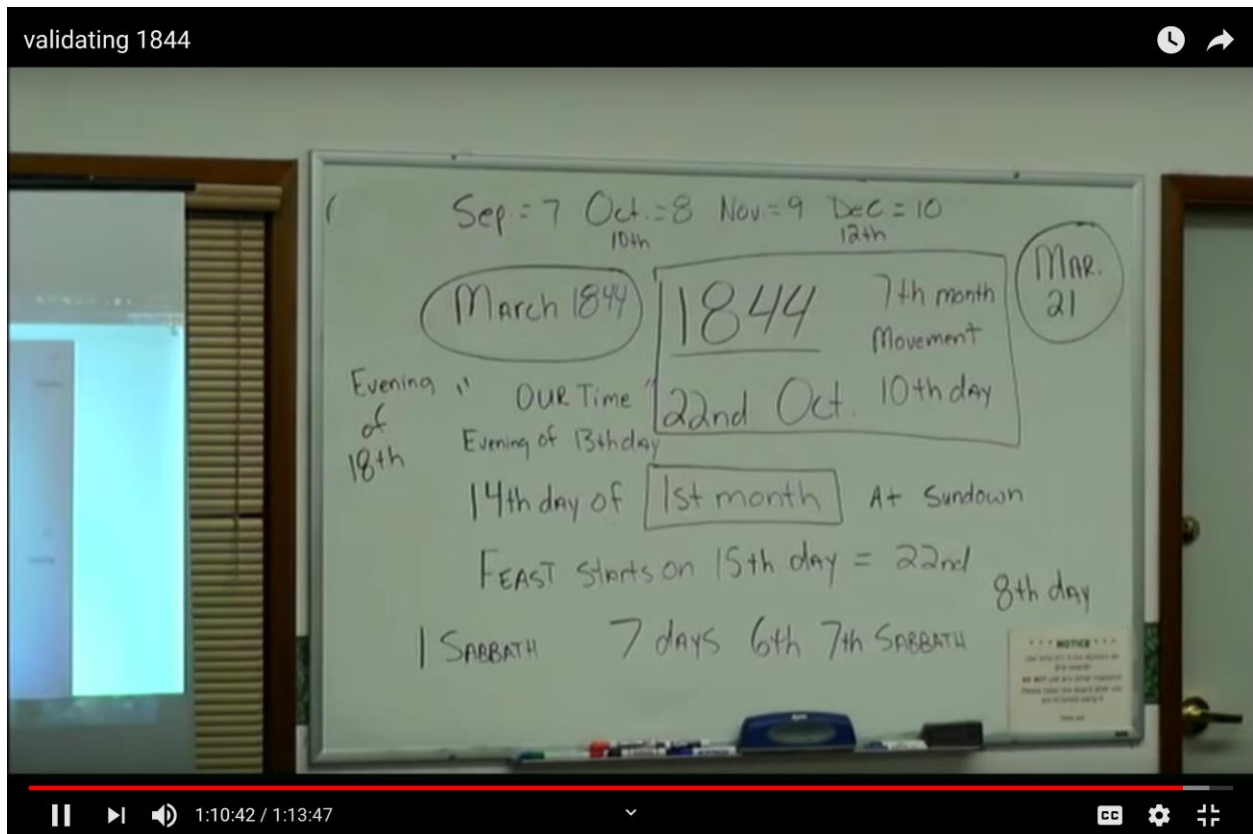 validating 1844
Sep. = 7 Oct. = 8 Nov = 9 Dec = 10
10th 12th
March 1844
1844
7th month
Movement
22nd Oct. 10th day
MAR.
21
Evening
of
18th
" OUR Time "
Evening of 13th day
14th day of 1st month At Sundown
FEAST Starts on 15th day = 22nd
8th day
1 SABBATH 7 days 6th 7th SABBATH
NOTICE
1:10:42 / 1:13:47
CC